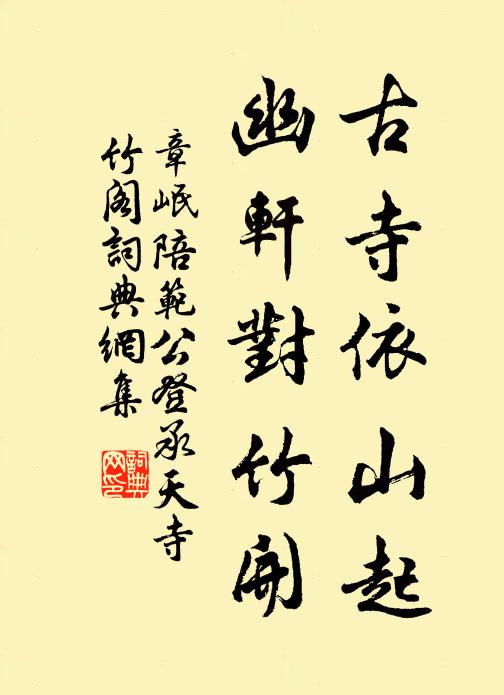 古寺依山起
幽軒對竹開
章岷陪範公登承天寺
竹閣詞典網集
詞典
网印